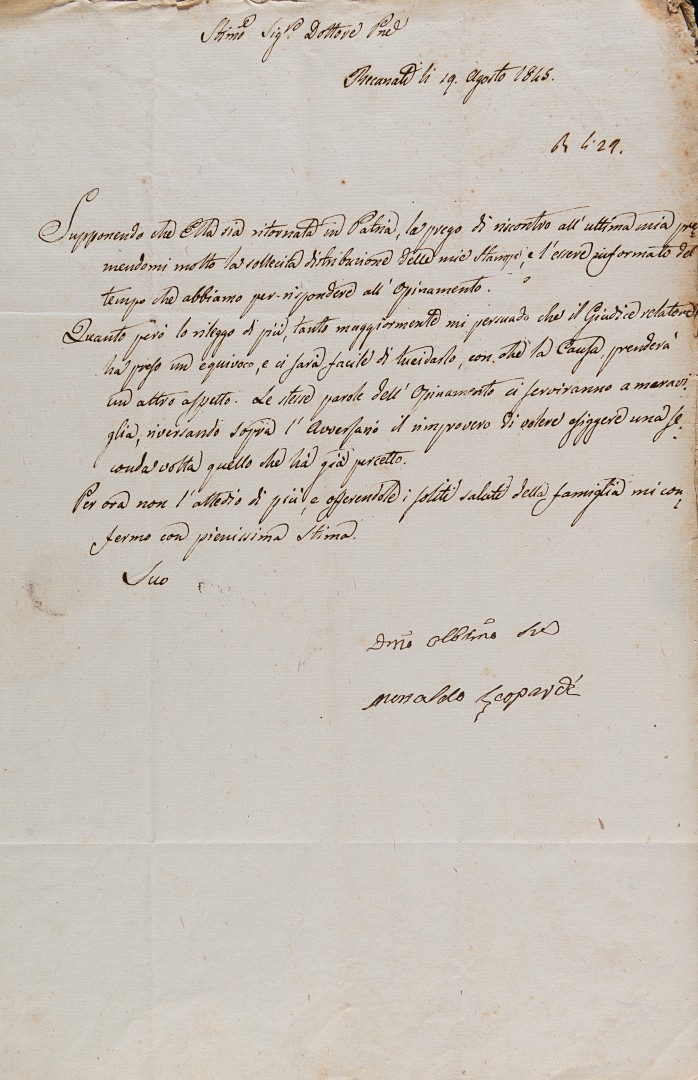 Stimo Sigre Dottore Pne
Recanati li 19. Agosto 1845.
R li 24.
Supponendo che Ella sia ritornata in Patria, la prego di riscontro all'ultima mia pre=
mendomi molto la sollecita distribuzione delle mie Stampe, e l'essere informato del
tempo che abbiamo per rispondere all'Opinamento.
Quanto però lo rileggo di più, tanto maggiormente mi persuado che il Giudice relatore
ha preso un equivoco, e ci sarà facile di lucidarlo, con che la Causa prenderà
un altro aspetto. Le stesse parole dell'Opinamento ci serviranno a maravi=
glia, riversando sopra l'Avversario il rimprovero di volere esiggere una se=
conda volta quello che ha già percetto.
Per ora non l'attedio di più, e offerendole i soliti saluti della famiglia mi con=
fermo con pienissima stima.
Suo
Dmo Obbmo Sre
Monaldo Leopardi